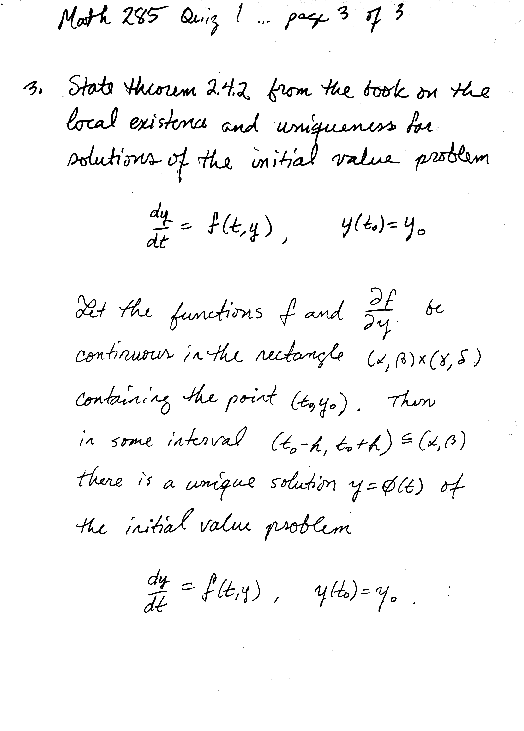 Math 285 Quiz 1 ... page 3 of 3
3. State theorem 2.4.2 from the book on the
local existence and uniqueness for
solutions of the initial value problem
dy/dt = f(t,y), y(t₀)=y₀
Let the functions f and ∂f/∂y be
continuous in the rectangle (α,β)×(γ,δ)
containing the point (t₀,y₀). Then
in some interval (t₀-h, t₀+h) ⊆ (α,β)
there is a unique solution y=φ(t) of
the initial value problem
dy/dt = f(t,y), y(t₀)=y₀.